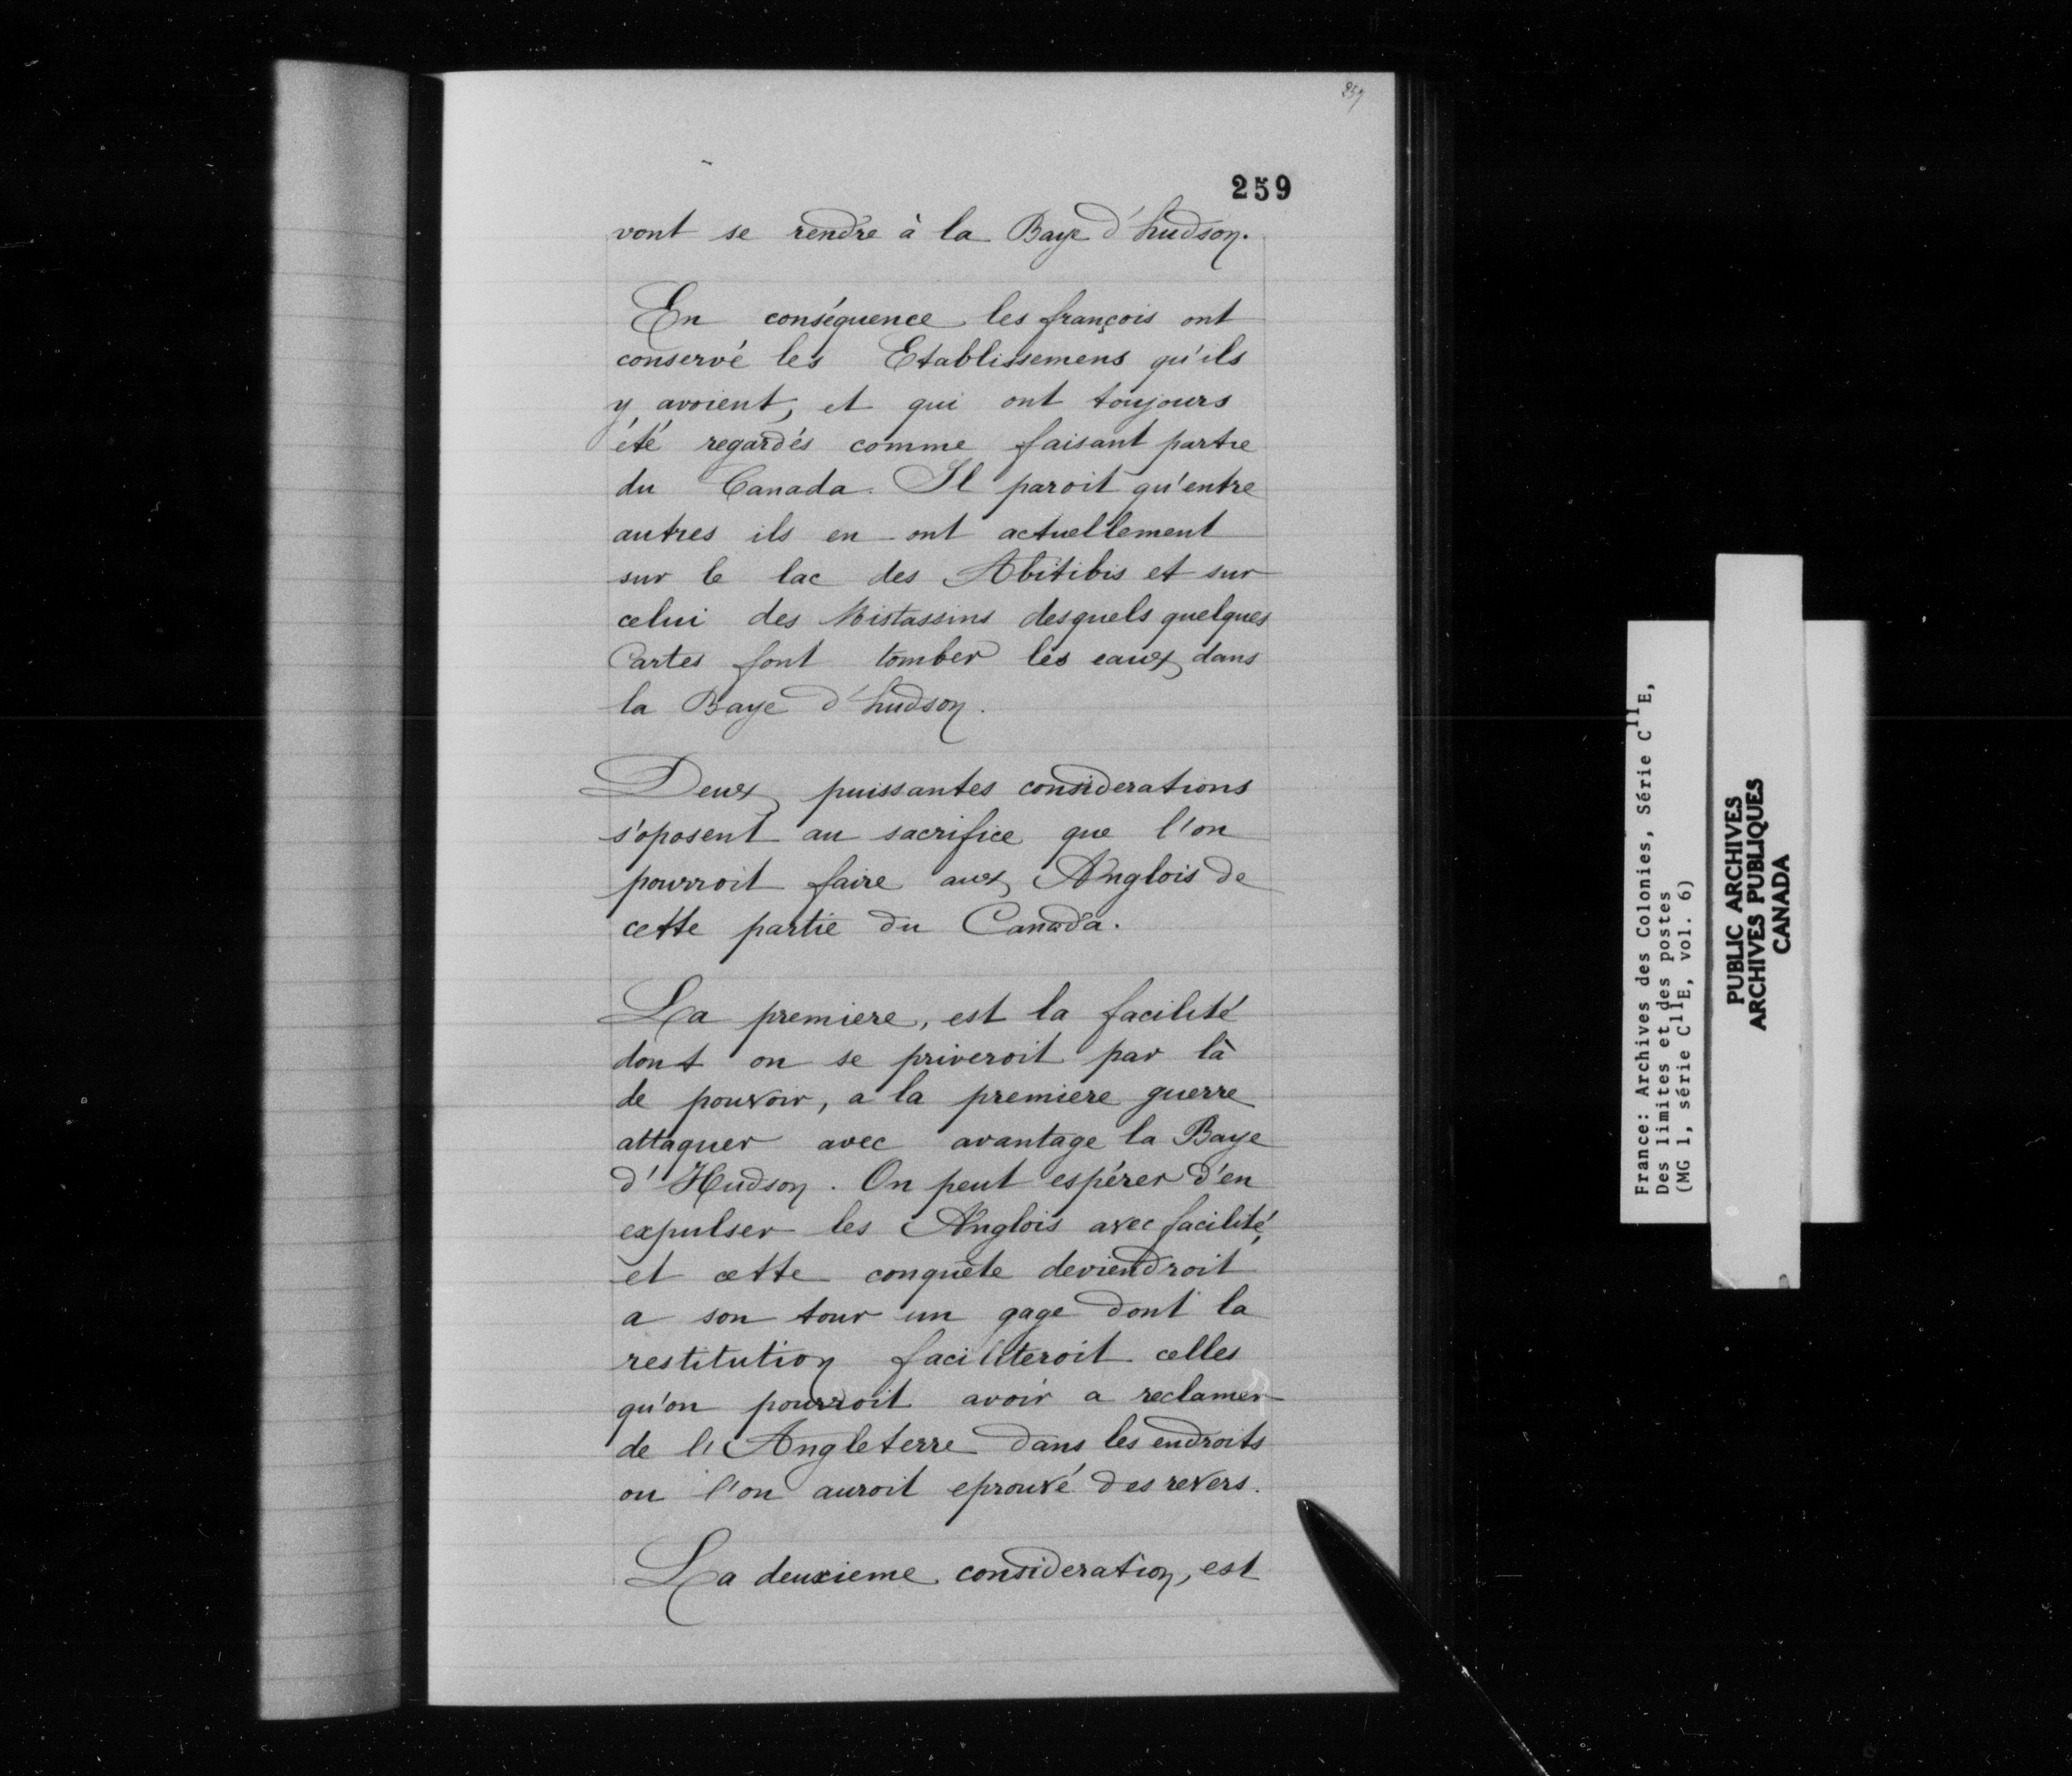 259
259
vont se rendre à la Baye d'hudson.
En conséquence les françois ont
conservé les Etablissemens qu'ils
y avoient, et qui ont toujours
été regardés comme faisant partie
du Canada. Il paroit qu'entre
autres ils en ont actuellement
sur le lac des Abitibis et sur
celui des Mistassins desquels quelques
Cartes font tomber les eaux dans
la Baye d'hudson.
Deux puissantes considerations
s'oposent au sacrifice que l'on
pourroit faire aux Anglois de
cette partie du Canada.
La premiere, est la facilité
dont on se priveroit par là
de pouvoir, a la premiere guerre
attaquer avec avantage la Baye
d'Hudson. On peut espérer d'en
expulser les Anglois avec facilité,
et cette conquête deviendroit
a son tour un gage dont la
restitution faciliteroit celles
qu'on pourroit avoir a reclamer
de l'Angleterre dans les endroits
ou l'on auroit eprouvé des revers.
La deuxieme consideration, est
France: Archives des Colonies, Série C11E,
Des limites et des postes
(MG 1, série C11E, vol. 6)
PUBLIC ARCHIVES
ARCHIVES PUBLIQUES
CANADA